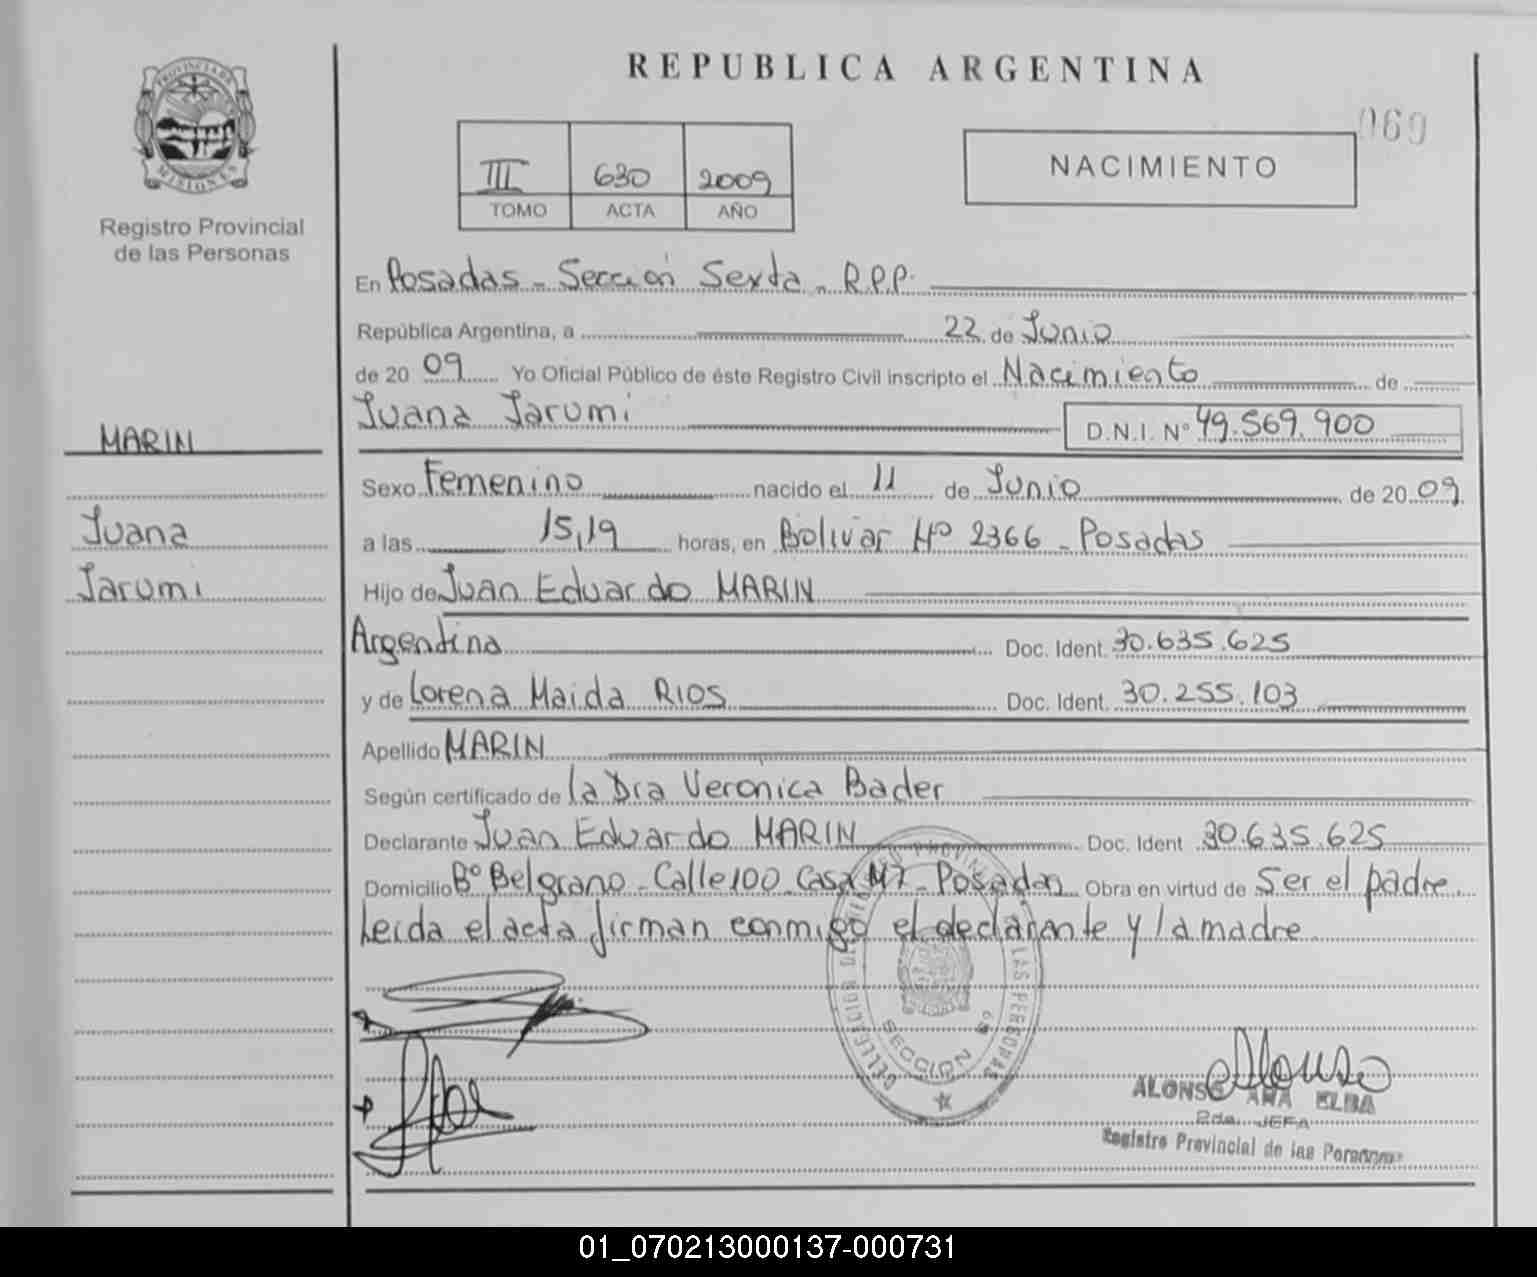 REPUBLICA ARGENTINA
PROVINCIA DE
MISIONES
Registro Provincial
de las Personas
III 630 2009
TOMO ACTA AÑO
NACIMIENTO
069
En Posadas - Sección Sexta - R.P.P.
República Argentina, a 22 de Junio
de 20 09 Yo Oficial Público de éste Registro Civil inscripto el Nacimiento de
Juana Jarumi D.N.I. Nº 49.569.900
MARIN
Juana
Jarumi
Sexo Femenino nacido el 11 de Junio de 20 09
a las 15,19 horas, en Bolivar Nº 2366 - Posadas
Hijo de Juan Eduardo MARIN
Argentina Doc. Ident. 30.635.625
y de Lorena Maida RIOS Doc. Ident. 30.255.103
Apellido MARIN
Según certificado de la Dra Veronica Bader
Declarante Juan Eduardo MARIN Doc. Ident 30.635.625
Domicilio Bº Belgrano - Calle 100 - Casa - Posadas Obra en virtud de Ser el padre.
Leida el acta firman conmigo el declarante y la madre.
LAS PERSONAS
SECCION 6º
Alonso
ALONSO ANA ELBA
2da. JEFA
Registro Provincial de las Personas
01_070213000137-000731